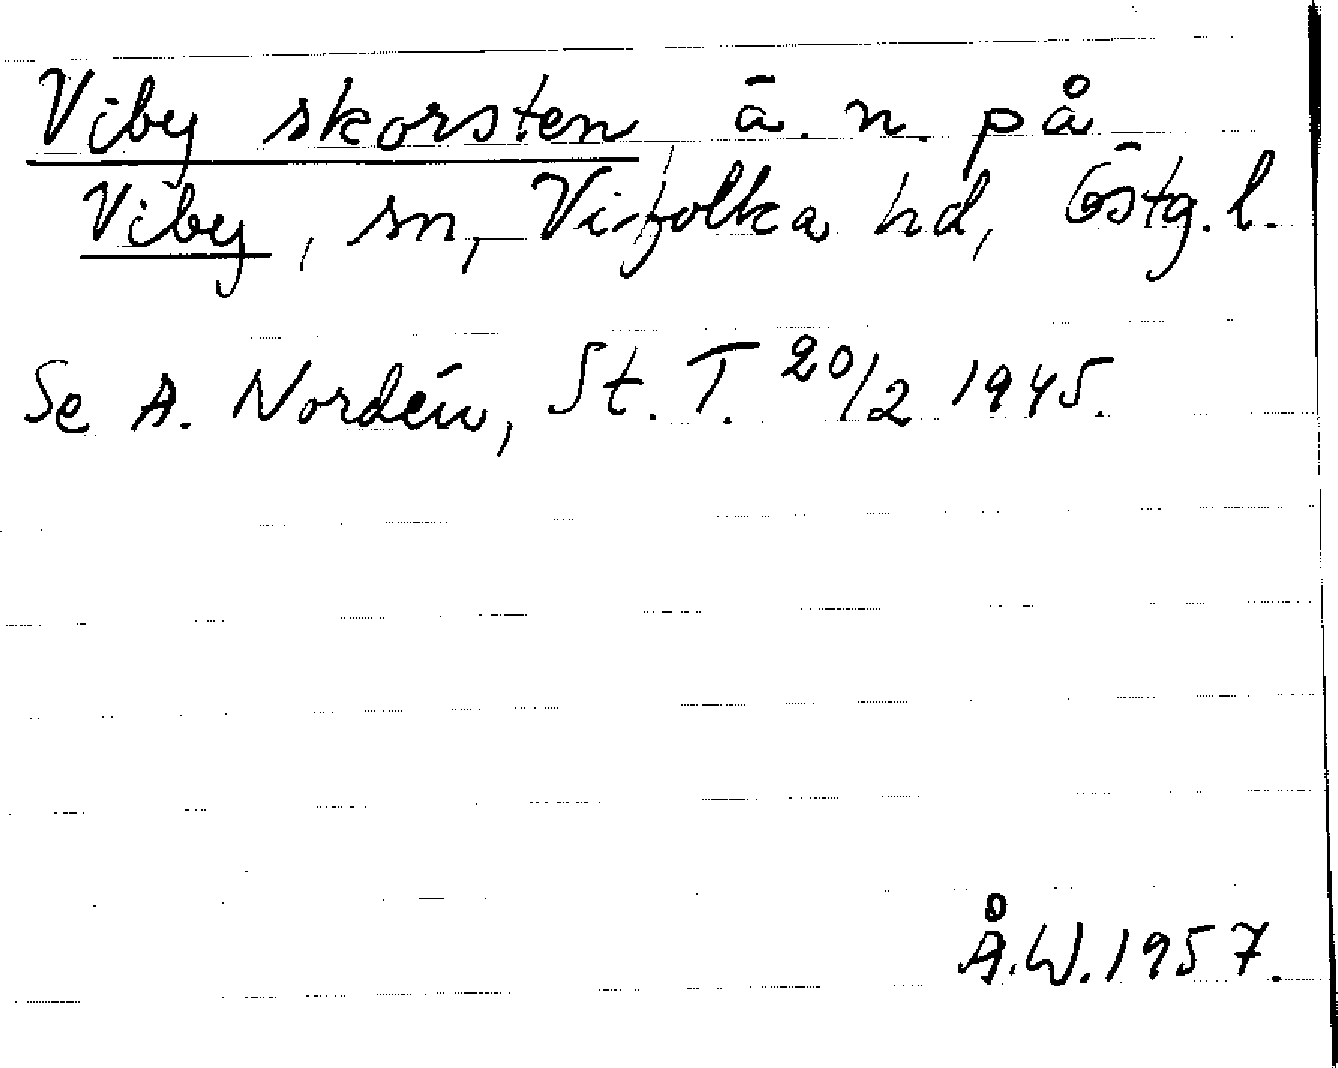 Viby skorsten, ä. n. på
Viby, sn, Vifolka hd, Östg. l.
Se A. Nordén, St. T. 20/2 1945.
Å.W. 1957.